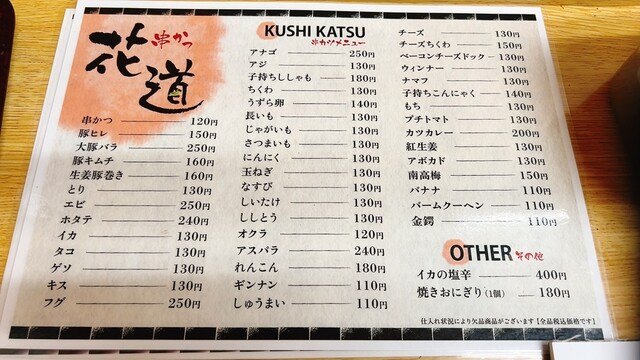 串かつ
花道
串かつ 120円
豚ヒレ 150円
大豚バラ 250円
豚キムチ 160円
生姜豚巻き 160円
とり 130円
エビ 250円
ホタテ 240円
イカ 130円
タコ 130円
ゲソ 130円
キス 130円
フグ 250円
KUSHI KATSU
串カツメニュー
アナゴ 250円
アジ 130円
子持ちししゃも 180円
ちくわ 130円
うずら卵 140円
長いも 130円
じゃがいも 130円
さつまいも 130円
にんにく 130円
玉ねぎ 130円
なすび 130円
しいたけ 130円
ししとう 130円
オクラ 120円
アスパラ 240円
れんこん 180円
ギンナン 110円
しゅうまい 110円
チーズ 130円
チーズちくわ 150円
ベーコンチーズドック 130円
ウィンナー 130円
ナマフ 130円
子持ちこんにゃく 140円
もち 130円
プチトマト 130円
カツカレー 200円
紅生姜 130円
アボカド 130円
南高梅 150円
バナナ 110円
バームクーヘン 110円
金鍔 110円
OTHER その他
イカの塩辛 400円
焼きおにぎり(1個) 180円
仕入れ状況により欠品商品がございます【全品税込価格です】